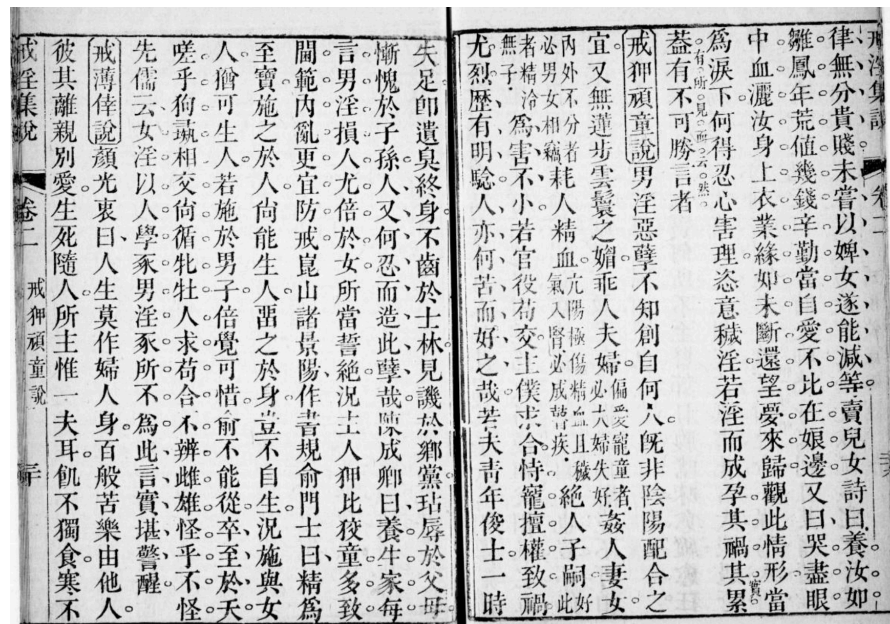 戒淫集說
卷二
律無分貴賤未嘗以婢女遂能減等賣兒女詩曰養汝如
雛鳳年荒值幾錢辛勤當自愛不比在娘邊又曰哭盡眼
中血灑汝身上衣業緣如未斷還望夢來歸觀此情形當
為淚下何得忍心害理恣意穢淫若淫而成孕其禍其累
實有所見而云然
葢有不可勝言者
戒狎頑童說男淫惡孽不知創自何人旣非陰陽配合之
宜又無蓮步雲鬟之媚乖人夫婦偏愛寵童者必夫婦失好姦人妻女
內外不分者必男女相竊耗人精血亢陽極傷精血且穢氣入腎必成瞽疾絕人子嗣好此
者精冷無子為害不小若官役苟交主僕求合恃寵擅權致禍
尤烈歷有明驗人亦何苦而好之哉若夫青年俊士一時
失足卽遺臭終身不齒於士林見譏於鄉黨玷辱於父母
慚愧於子孫人又何忍而造此孽哉陳成卿曰養生家每
言男淫損人尤倍於女所當誓絕況主人狎比狡童多致
閫範內亂更宜防戒崑山諸景陽作書規俞門士曰精為
至寶施之於人尙能生人畱之於身豈不自生況施與女
人猶可生人若施於男子倍覺可惜俞不能從卒至於夭
嗟乎狗彘相交尙循牝牡人求苟合不辨雌雄怪乎不怪
先儒云女淫以人學豕男淫豕所不為此言實堪警醒
戒薄倖說顏光衷曰人生莫作婦人身百般苦樂由他人
彼其離親別愛生死隨人所主惟一夫耳飢不獨食寒不
戒淫集說
卷二
戒狎頑童說